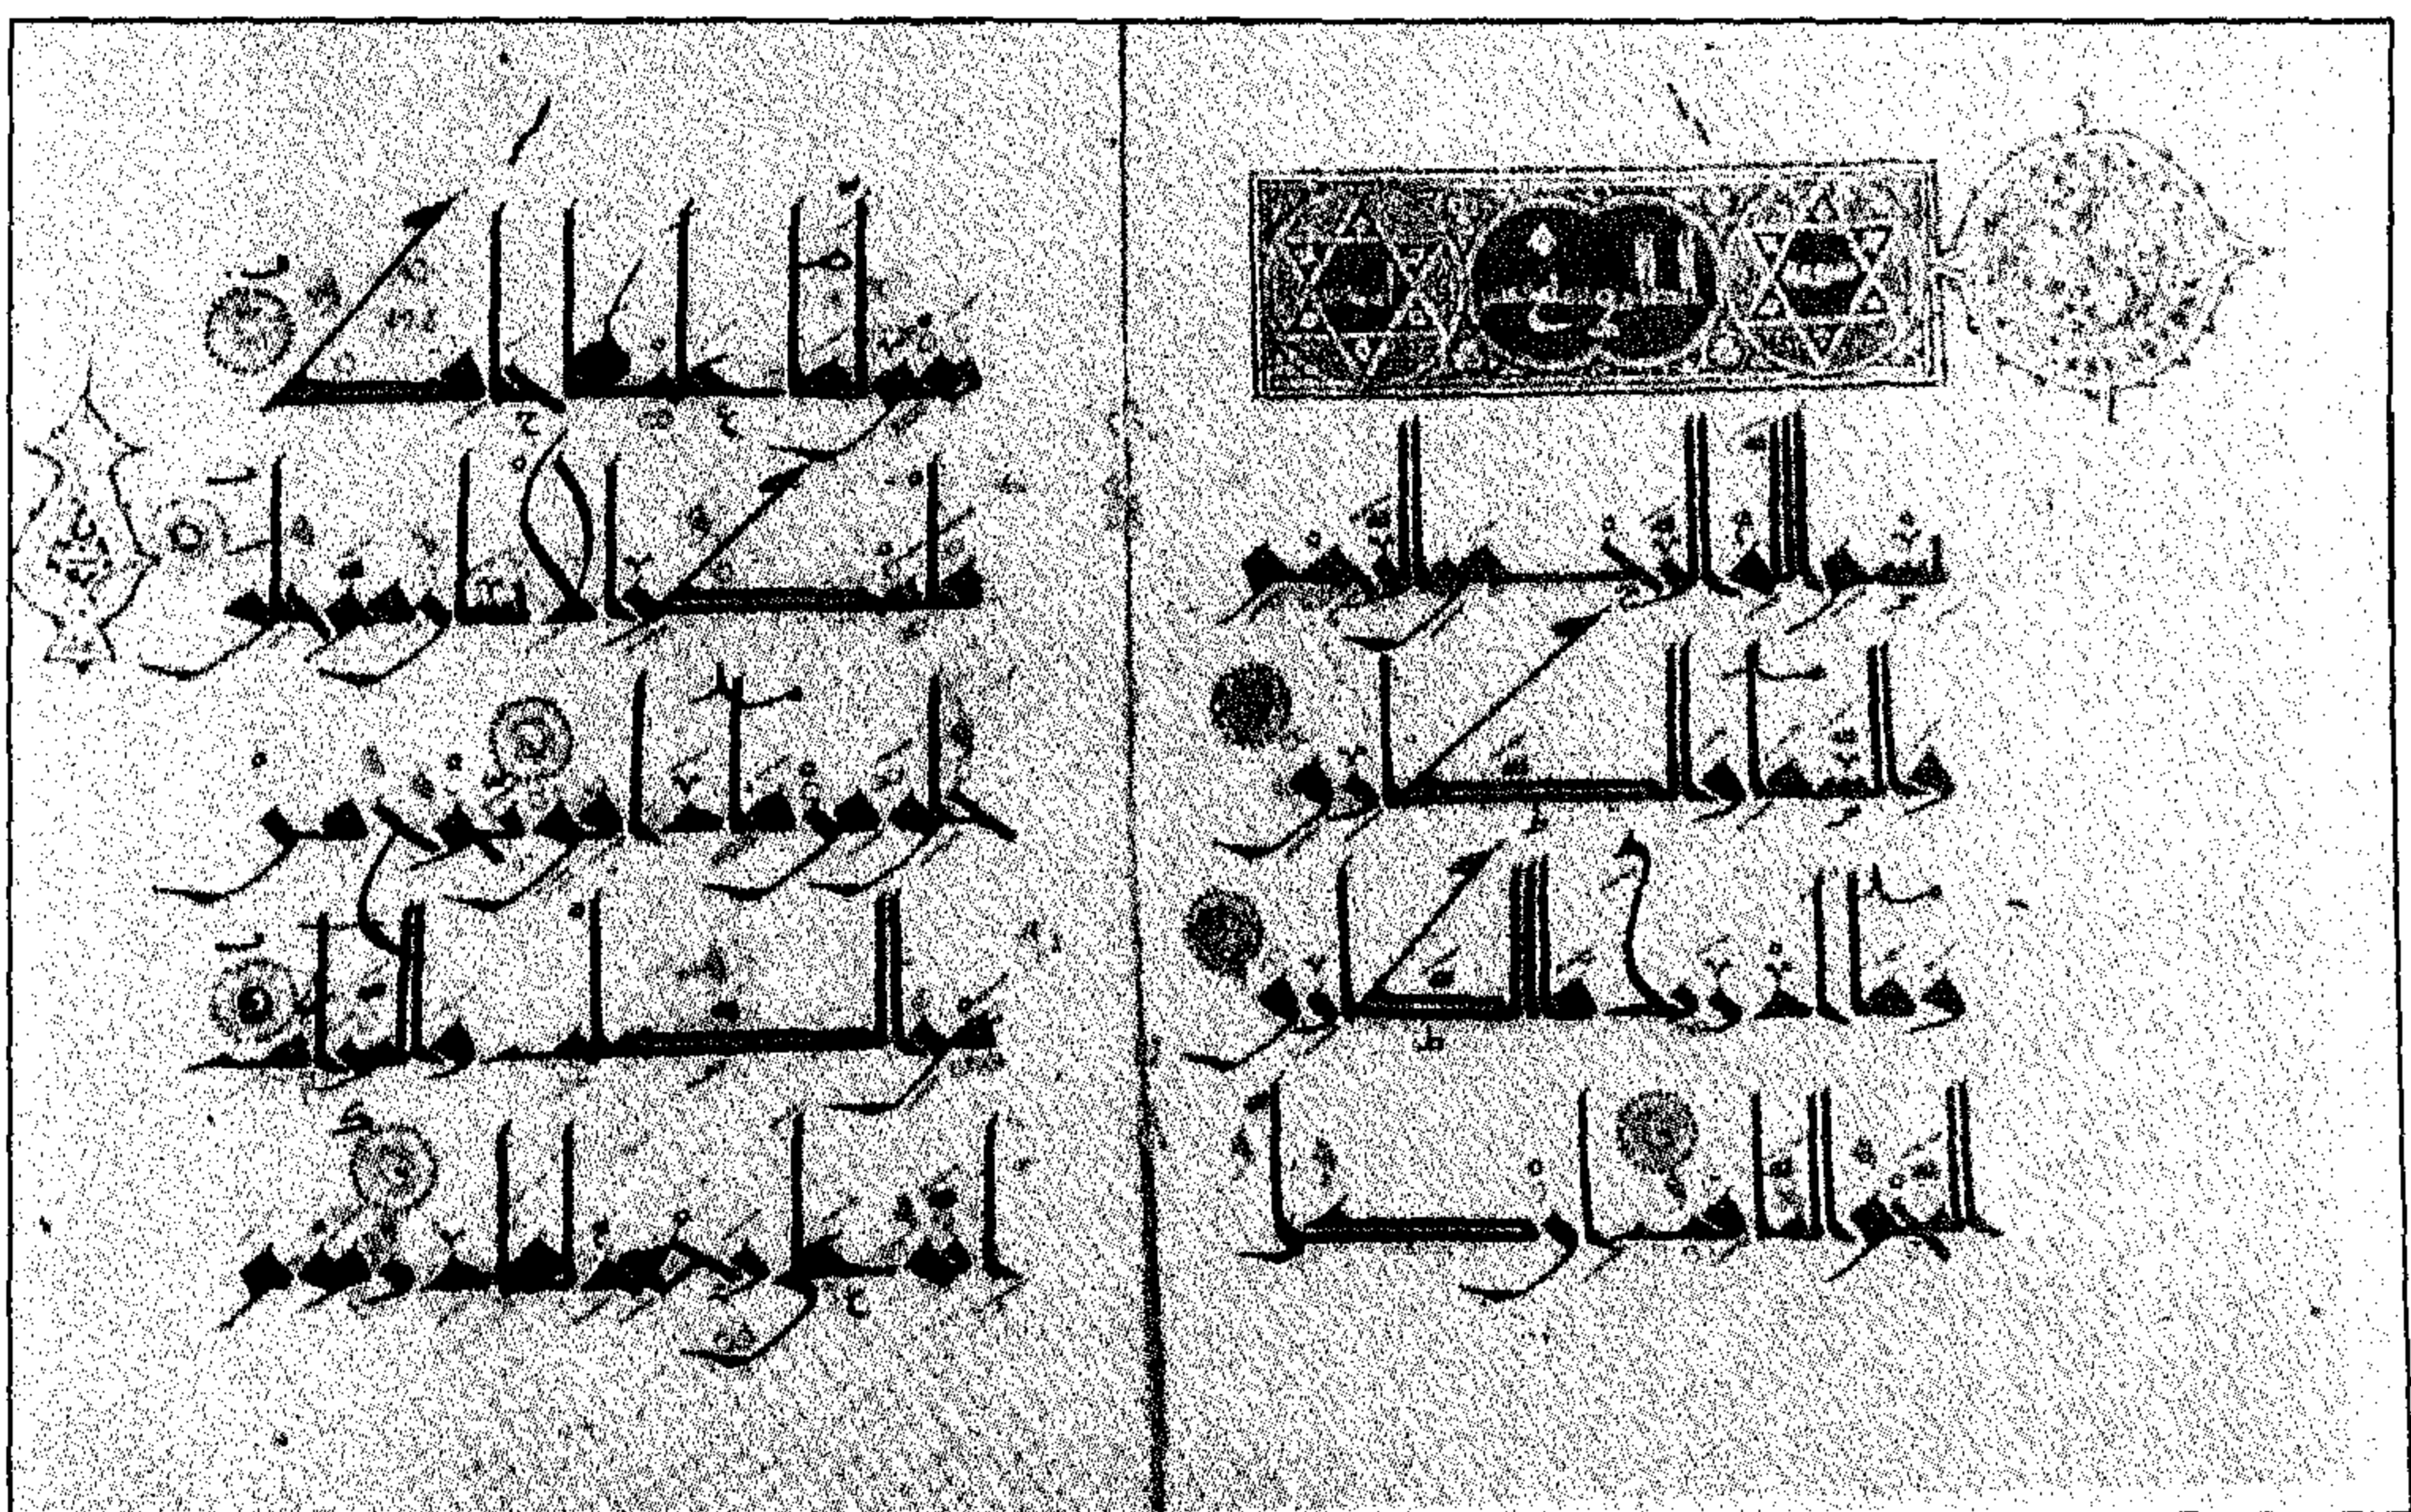 بسم الله الرحمن الرحيم
والسماء والطارق
وما أدريك ما الطارق
النجم الثاقب إن كل
نفس لما عليها حافظ
فلينظر الإنسان مم خلق
خلق من ماء دافق يخرج من
بين الصلب والترائب
إنه على رجعه لقادر يوم